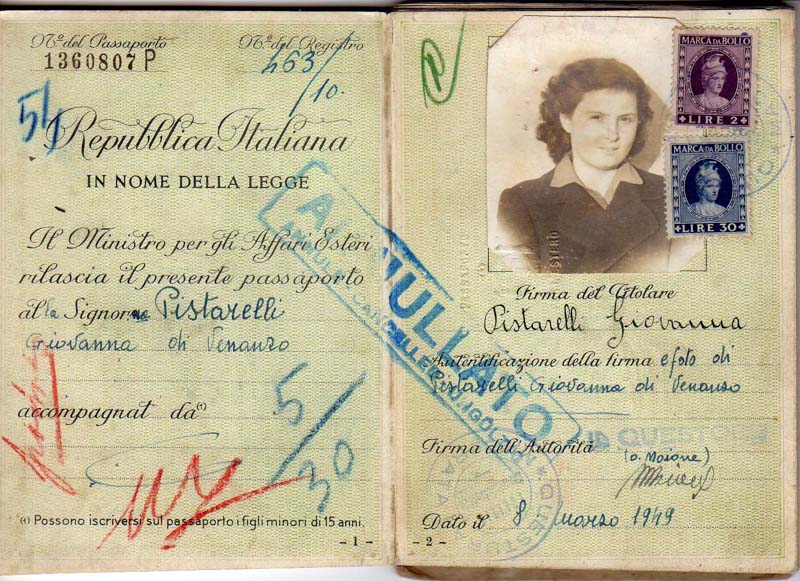 Nº del Passaporto
1360807 P
Nº del Registro
463/10.
54
Repubblica Italiana
IN NOME DELLA LEGGE
Il Ministro per gli Affari Esteri
rilascia il presente passaporto
al la Signorna Pistarelli
Giovanna di Venanzo
accompagnat da (1)
5/30
(1) Possono iscriversi sul passaporto i figli minori di 15 anni.
- 1 -
ANNULLATO
MARCA DA BOLLO
LIRE 2
MARCA DA BOLLO
LIRE 30
Firma del Titolare
Pistarelli Giovanna
Autentificazione della firma e foto di
Pistarelli Giovanna di Venanzo
Firma dell'Autorità
Dato il 8 marzo 1949
- 2 -